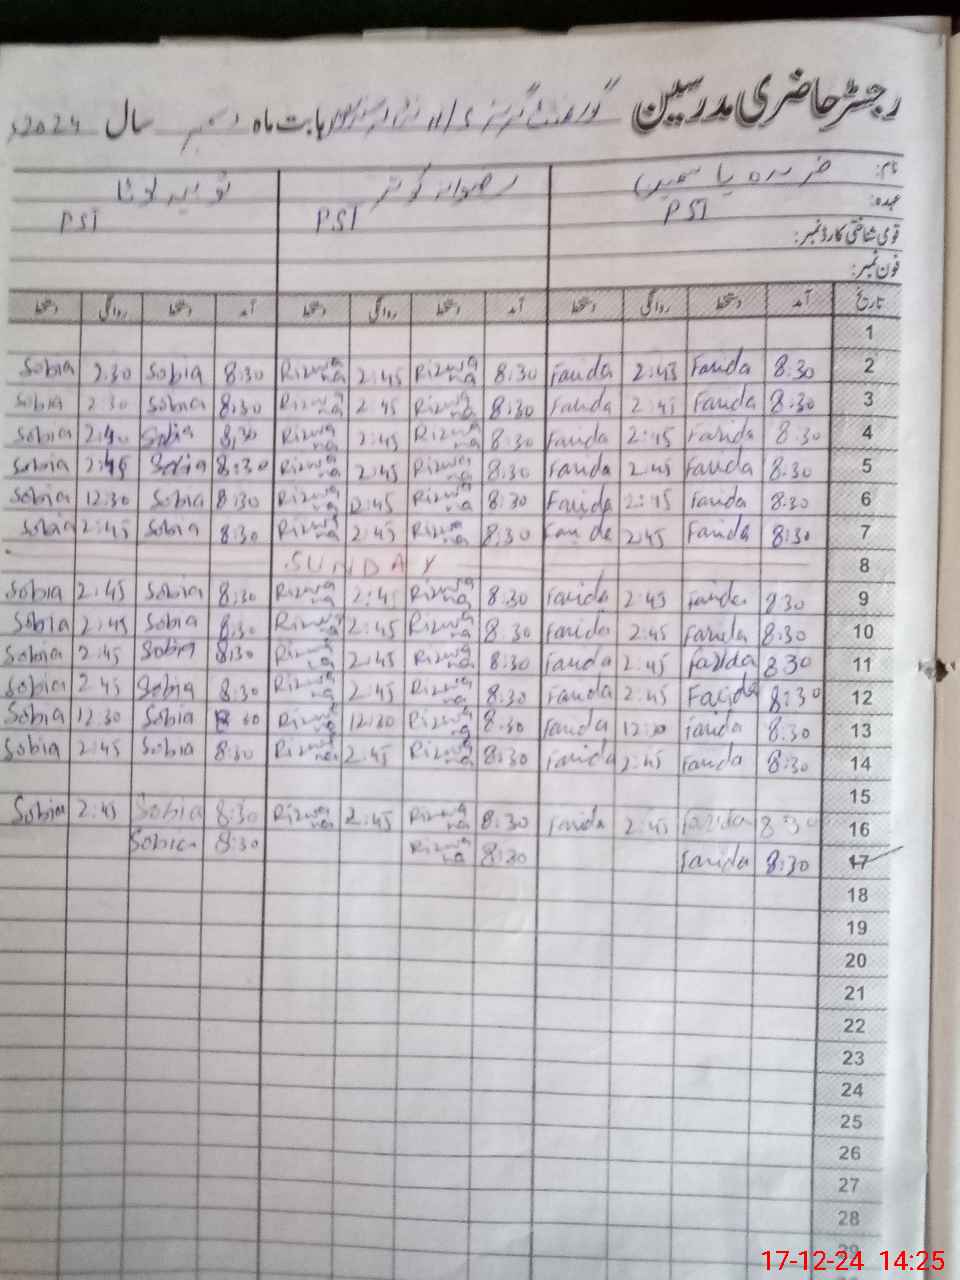 رجسٹر حاضری مدرسین گورنمنٹ گرلز بابت ماہ دسمبر سال 2024ء
نام: فریدہ یاسمین رضوانہ کوثر ثوبیہ
عہدہ: PST PST PST
قومی شناختی کارڈ نمبر:
فون نمبر:
تاریخ آمد دستخط روانگی دستخط آمد دستخط روانگی دستخط آمد دستخط روانگی دستخط
1
Sobia 2.30 Sobia 8:30 Rizwana 2:45 Rizwana 8:30 Farida 2:45 Farida 8:30 2
Sobia 2:30 Sobia 8:30 Rizwana 2:45 Rizwana 8:30 Farida 2:45 Farida 8:30 3
Sobia 2:40 Sobia 8:30 Rizwana 2:45 Rizwana 8:30 Farida 2:45 Farida 8:30 4
Sobia 2:45 Sobia 8:30 Rizwana 2:45 Rizwana 8:30 Farida 2:45 Farida 8:30 5
Sobia 12:30 Sobia 8:30 Rizwana Rizwana 8:30 Farida 2:45 Farida 8:30 6
Sobia 2:45 Sobia 8:30 Rizwana 2:45 Rizwana 8:30 Farida 2:45 Farida 8:30 7
SUNDAY 8
Sobia 2:45 Sobia 8:30 Rizwana 2:45 Rizwana 8:30 Farida 2:45 Farida 8:30 9
Sobia 2:45 Sobia 8:30 Rizwana 2:45 Rizwana 8:30 Farida 2:45 Farida 8:30 10
Sobia 2:45 Sobia 8:30 Rizwana 2:45 Rizwana 8:30 Farida 2:45 Farida 8:30 11
Sobia 2:45 Sobia 8:30 Rizwana 2:45 Rizwana 8:30 Farida 2:45 Farida 8:30 12
Sobia 12:30 Sobia 8:30 Rizwana 12:30 Rizwana 8:30 Farida 12:30 Farida 8:30 13
Sobia 2:45 Sobia 8:30 Rizwana 2:45 Rizwana 8:30 Farida 2:45 Farida 8:30 14
15
Sobia 2:45 Sobia 8:30 Rizwana 2:45 Rizwana 8:30 Farida 2:45 Farida 8:30 16
Sobia 8:30 Rizwana 8:30 Farida 8:30 17
18
19
20
21
22
23
24
25
26
27
28
29
17-12-24 14:25